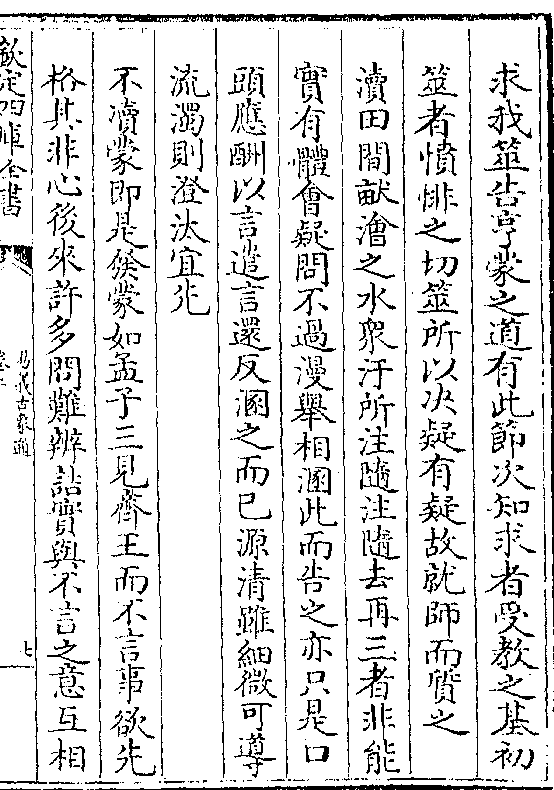 求我筮告亨蒙之道有此節次知求者受教之基初
筮者憤悱之切筮所以決疑有疑故就師而質之
瀆田間畎澮之水衆汙所注隨注隨去再三者非能
實有體會疑問不過漫舉相溷此而告之亦只是口
頭應酬以言遣言還反溷之而已源清雖細微可導
流濁則澄汰宜先
不瀆蒙即是發蒙如孟子三見齊王而不言事欲先
格其非心後來許多問難辨詰實與不言之意互相
欽定四庫全書
易義古象通
卷二
七